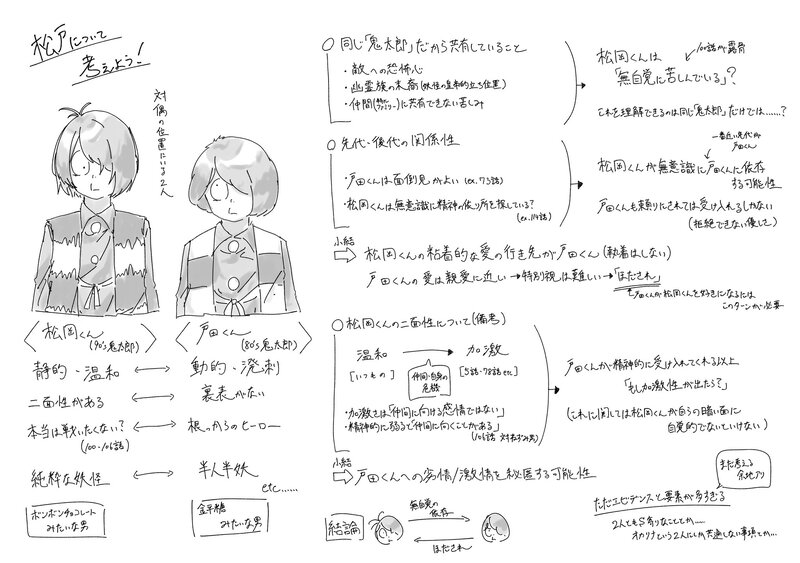 松戸について
考えよう!
対偶の位置にいる2人
〈松岡くん(90's鬼太郎)〉
〈戸田くん(80's鬼太郎)〉
静的・温和 ⟷ 動的・溌剌
二面性がある ⟷ 裏表がない
本当は戦いたくない?(100-106話) ⟷ 根っからのヒーロー
純粋な妖怪 ⟷ 半人半妖
etc……
ボンボンチョコレート
みたいな男
金平糖
みたいな男
○ 同じ「鬼太郎」だから共有していること
・敵への恐怖心
・幽霊族の末裔
・仲間に共有できない苦しみ
100話が露骨
松岡くんは
「無自覚に苦しんでいる」?
これを理解できるのは同じ「鬼太郎」だけでは……?
○ 先代・後代の関係性
・戸田くんは面倒見がよい(ex.75話)
・松岡くんは無意識に精神の依り所を探している?
一番近い先代が
戸田くん
松岡くんが無意識に戸田くんに依存
する可能性
戸田くんも頼りにされては受け入れるしかない
(拒絶できない優しさ)
小結
松岡くんの粘着的な愛の行き先が戸田くん(執着はしない)
戸田くんの愛は親愛に近い→特別視は難しい→「ほだされ」
戸田くんが松岡くんを好きになるには
このターンが必要
○ 松岡くんの二面性について(備考)
温和 → 加激
[いつもの]
仲間・自身の
危機
[5話・78話etc]
・加激さは「仲間に向ける感情ではない」
・精神的に弱ると「仲間に向くことがある」
戸田くんが精神的に受け入れてくれる以上
「もし加激性が出たら?」
(これに関しては松岡くんが自らの暗い面に
自覚的でないといけない)
小結
戸田くんへの劣情/激情を秘匿する可能性
また考える
余地アリ
結論
無自覚の
依存
ほだされ
ただエビデンスと要素が多すぎる
2人ともS有りなこととか……
オカリナという2人にしか共通しない事項とか…